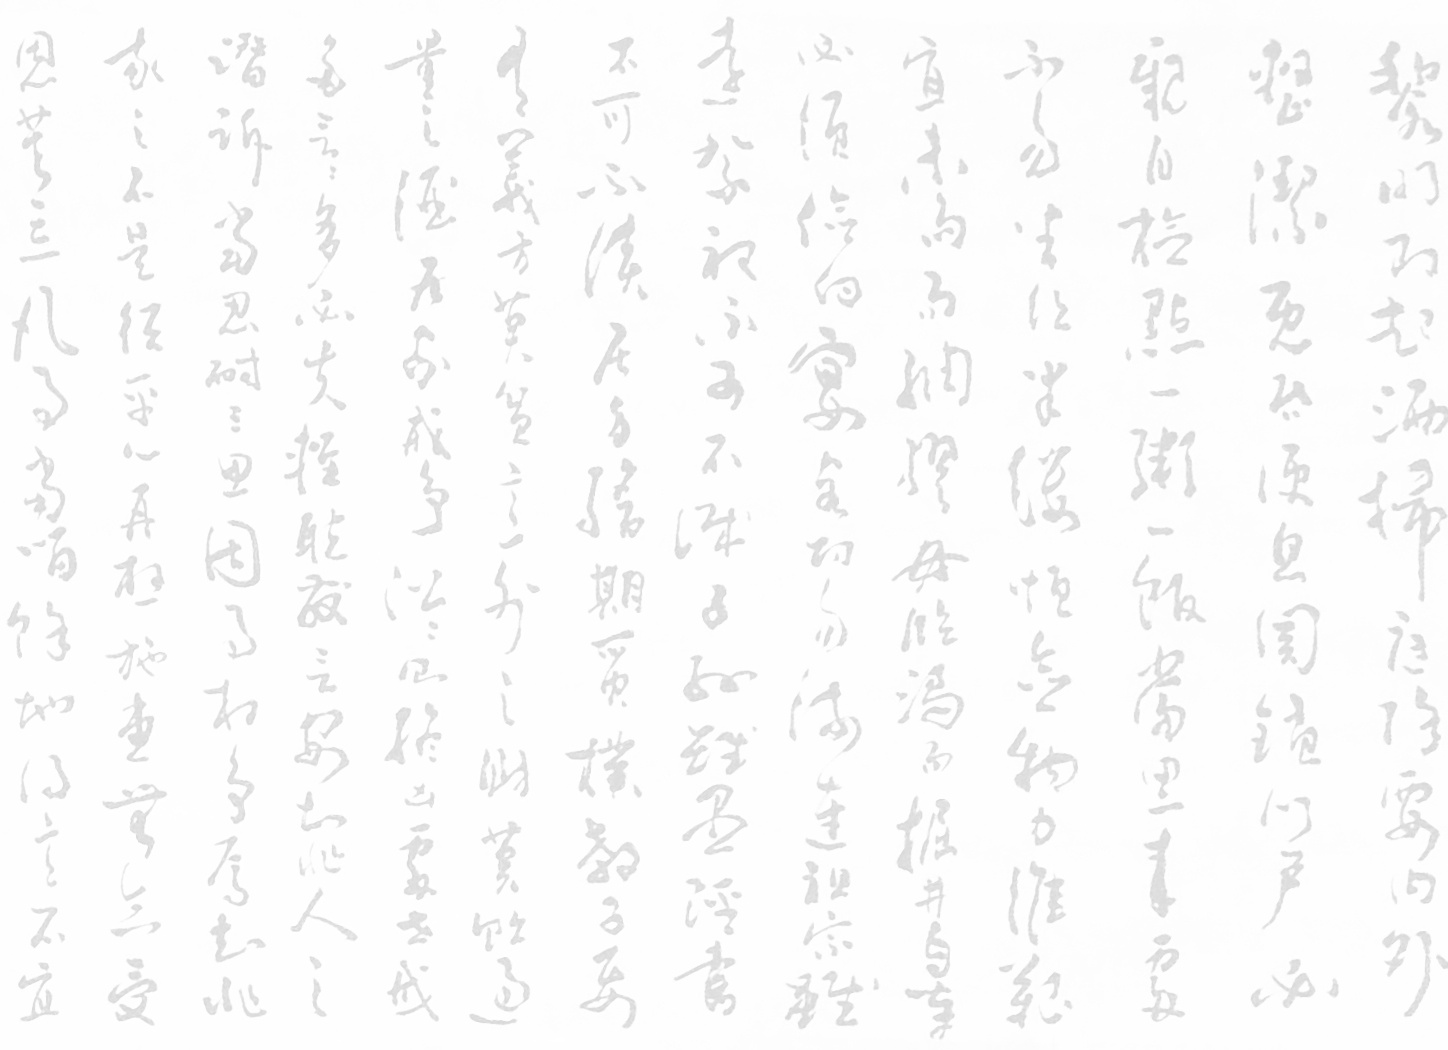 黎明即起洒掃庭除要内外
整潔既昏便息關鎖門戶必
親自檢點一粥一飯當思來處
不易半絲半縷恒念物力維艱
宜未雨而綢繆毋臨渴而掘井自奉
必須儉約宴客切勿流連祖宗雖
遠祭祀不可不誠子孫雖愚經書
不可不讀居身務期質樸教子要
有義方莫貪意外之財莫飲過
量之酒居家戒爭訟訟則終凶處世戒
多言言多必失輕聽發言安知非人之
譖訴當忍耐三思因事相爭焉知非
我之不是須平心再想施惠無念受
恩莫忘凡事當留餘地得意不宜